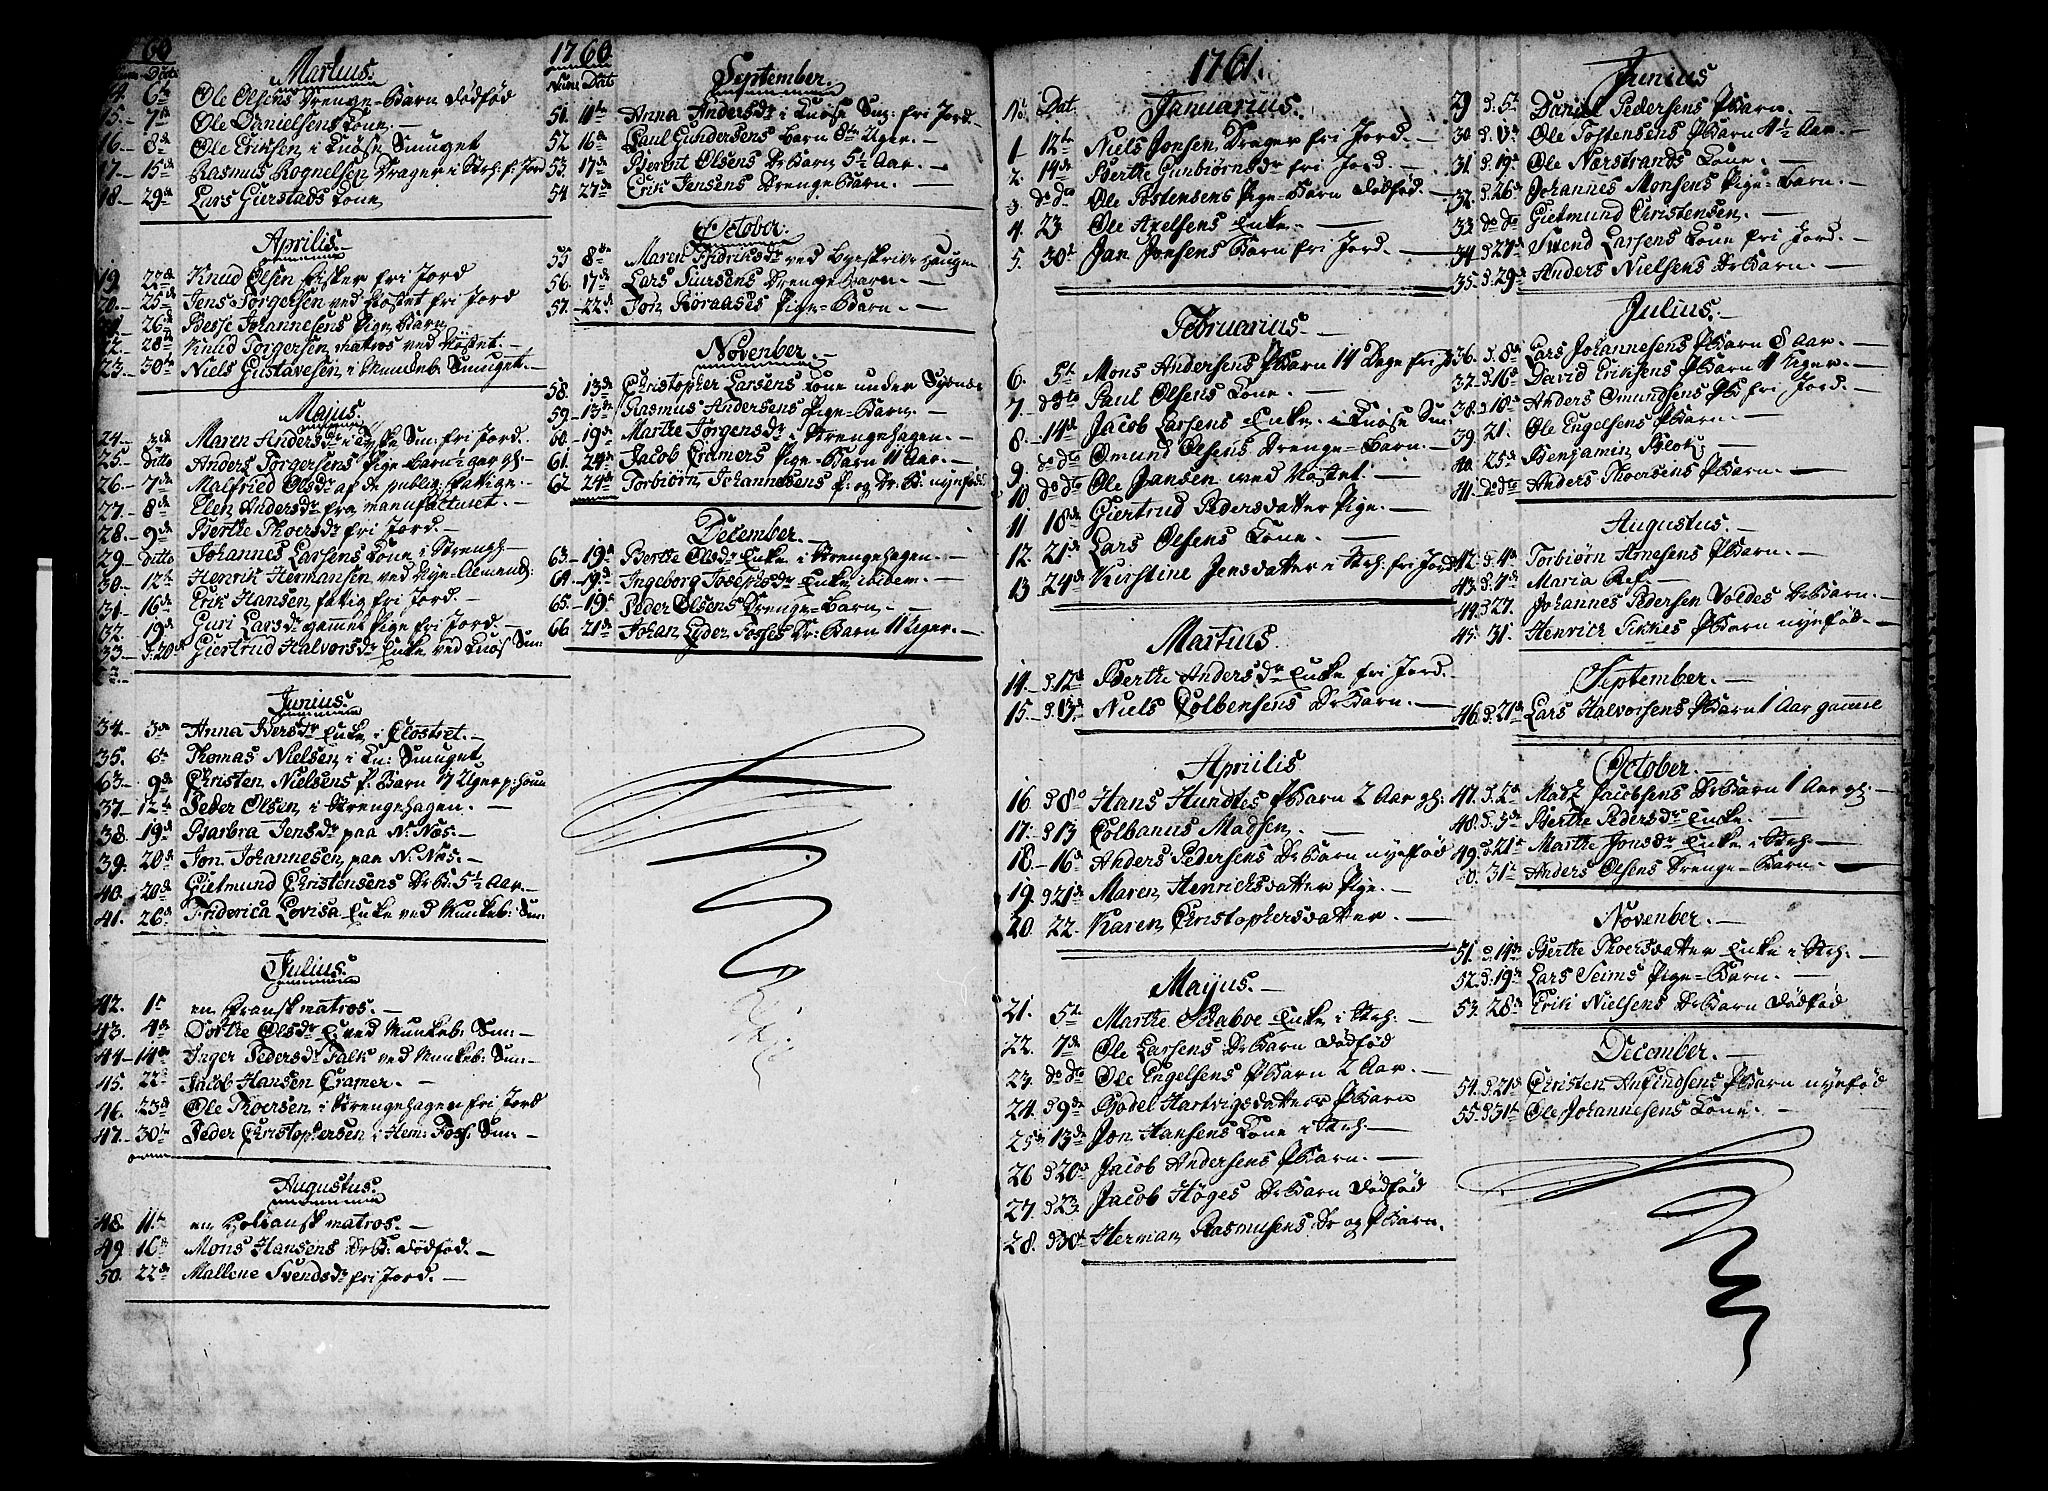 60
Num Dat
Martius.
14. 6te Ole Olsens Drenge-Barn dödföd
15. 7de Ole Danielsens Kone. —
16. 8de Ole Eriksen i Knöse Smuget
17. 15de Rasmus Rognelsen Drager i Strh: f: Jord
18. 29de Lars Gierstads Kone
Aprilis. —
19. 22de Knud Olsen Fisker fri Jord
20. 25de Jens Torgersen ved fri Jord
21. 26de Besse Johannesens Pige Barn
22. 28de Knud Torgersen matros ved Nöstet. —
23. 30te Niels Gustavesen i Munkeb: Smuget. —
Majus.
24. 3de Maren Andersdr i Sm: fri Jord.
25. ditto Anders Torgersens Pige Barn ½ aar gl: —
26. 7de Malfried Olsdr af de publiq: fattige. —
27. 8de Elen Andersdr fra manufacturet. —
28. 9de Berthe Thoersdr fri Jord. —
29. ditto Johannes Larsens Kone i Strengh —
30. 12te Henrik Hermansen ved Nye-Almend:
31. 16de Erik Hansen fattig fri Jord. —
32. 19de Guri Larsdr gammel Pige fri Jord. —
33. d: 20de Giertrud Halvorsdr Enke ved Knös Sm:
Junius.
34. 3de Anna Iversdr Enke i Clostret. —
35. 6te Thomas Nielsen i Kn: Smuget
63. 9de Christen Nielsens P: Barn 17 Uger
37. 12te Peder Olsen i Strengehagen. —
38. 19de Barbra Jensdr paa N: Nös. —
39. 20de Jon Johannesen paa N: Nös. —
40. 20de Gietmund Christensens Dr B: 5½ Aar. —
41. 26de Friderica Lovisa Enke ved Munkeb: Sm:
Julius.
42. 1te en Fransk matros. —
43. 4de Dorthe Olsdr E ved Munkeb: Sm: —
44. 14de Inger Pedersdr Falk ved Munkeb: Sm: —
45. 22de Jacob Hansen Cramer. —
46. 23de Ole Thoersen i Strengehagen fri Jord
47. 30te Peder Christophersen i Hem: Foss: Sm: —
Augustus.
48. 11te en Holiansk matros. —
49. 16de Mons Hansens Dr B: dödföd. —
50. 22de Mallene Svendsdr fri Jord. —
1760
Num Dat
September.
51. 11te Anna Andersdr i Knöse Sm: fri Jord —
52. 16de Paul Gundersens Barn 8te Uger. —
53. 17de Berent Olsens Dr Barn 5½ Aar. —
54. 27de Erik Jensens DrengeBarn. —
October.
55. 8de Maren Fridriksdr ved Byeskriver haugen
56. 17de Lars Siursens Drenge Barn. —
57. 22de Jon Röraases Pige=Barn. —
November. —
58. 13de Christopher Larsens Kone under Sydnes
59. 13de Rasmus Andersens Pige=Barn. —
60. 19de Marthe Jörgensdr i Strengehagen. —
61. 24de Jacob Cramers Pige-Barn 11 Aar. —
62. 24de Torbiörn Johannesens P: og Dr: B: nyeföd:
December. —
63. 19de Berthe Olsdr Enke i Strengehagen. —
64. 19de Ingeborg Josephsdr Enke ibidem. —
65. 19de Peder Olsens Drenge-Barn. —
66. 21de Johan Lyder Fosses Dr: Barn 11 Uger. —
1761.
No Dat.
Januarius.
1. 12te Niels Jonsen Drager fri Jord. —
2. 14de Berthe Gunbiörnsdr fri Jord. —
3. do dto Ole Tostensens Pige-Barn dödföd. —
4. 23 Ole Axelsens Enke. —
5. 30te Jan Jonsens Barn fri Jord. —
Februarius. —
6. 5te Mons Andersens P Barn 14 Dage fri J:
7. do dto Paul Olsens Kone. —
8. 14de Jacob Larsens Enke i Knöse Sm:
9. do dto Omund Olsens Drenge-Barn. —
10. do dto Ole Jansen ved Nöstet. —
11. 18de Giertrud Pedersdatter Pige. —
12. 21de Lars Olsens Kone. —
13. 24de Kirstine Jensdatter i Strh: fri Jord
Martius.
14. d. 12te Berthe Andersdr Enke fri Jord.
15. d. 13de Niels Colbensens Dr Barn. —
Apriilis
16. d 8de Hans Hundtes P Barn 2 Aar gl:
17. d 13 Colbanus Madsen. —
18. 16de Anders Pedersens Dr Barn nyeföd
19. d 21de Maren Henricksdatter Pige. —
20. 22. Karen Christophersdatter. —
Maijus. —
21. 5te Marthe Schaboe Enke i Strh: —
22. 7de Ole Larsens Dr Barn dödföd
23. do dto Ole Engelsens P Barn 2 Aar. —
24. d 9de Bodel Hartvigsdatters P Barn
25. 13de Jon Hansens Kone i Strh: —
26 d 20de Jacob Andersens P Barn. —
27. d 23. Jacob Höges Dr Barn dödföd
28. d 30te Herman Rasmusens Dr og P Barn.
Junius
29 d. 5te Daniel Pedersens P Barn. —
30. d. 13de Ole Tostensens P Barn 4½ Aar. —
31. d. 19de Ole Nærstrands Kone. —
32. d. 26de Johannes Monsens Pige-Barn. —
33. do dto Gietmund Christensen. —
34. d 27de Svend Larsens Kone fri Jord. —
35. d. 29de Anders Nielsens Dr Barn. —
Julius. —
36. d. 8de Lars Johannesens P Barn 8 Aar. —
37. d 16de David Eriksens P Barn 4 Uger. —
38. d 18de Anders Omundsens PB fri Jord. —
39. 21. Ole Engelsens P Barn. —
40. 25de Benjamin Blok; —
41. do dto Anders Thoersens P Barn. —
Augustus. —
42. d. 4de Torbiörn Arnesens P Barn. —
43. d. 7de Maria Ref. —
44. d 27. Johannes Pedersen Voldes Dr Barn. —
45. 31. Henrich Fikkes P Barn nyeföd. —
September. —
46. d. 21de Lars Halvorsens P Barn 1 Aar gamme
October. —
47. d. 2de Madz Jacobsens Dr Barn 1 Aar gl: —
48. d. 5te Berthe Pedersdr Enke. —
49. d 21de Marthe Jonsdr Enke i Strh: —
50. 31te Anders Olsens Drenge-Barn. —
November. —
51. d. 14de Berthe Thoersdatter Enke i Strh. —
52. d. 19de Lars Seims Pige-Barn. —
53. 28de Erik Nielsens Dr Barn dödföd
December. —
54. d. 21de Christen Anfindsens P Barn nyeföd
55. d 31te Ole Johannesens Kone. —